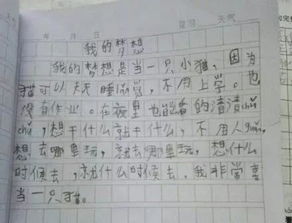 星期 天气
年 月 日
我的梦想
我的梦想是当一只小猫，因为
猫可以天天睡懒觉，不用上学。也
没有作业。在夜里也能看的清清chǔ
chǔ，想干什么就干什么，不用人guǎn。
想去哪里玩，就去哪里玩，想什么
时候去，就什么时候去，我非常想
当一只猫。